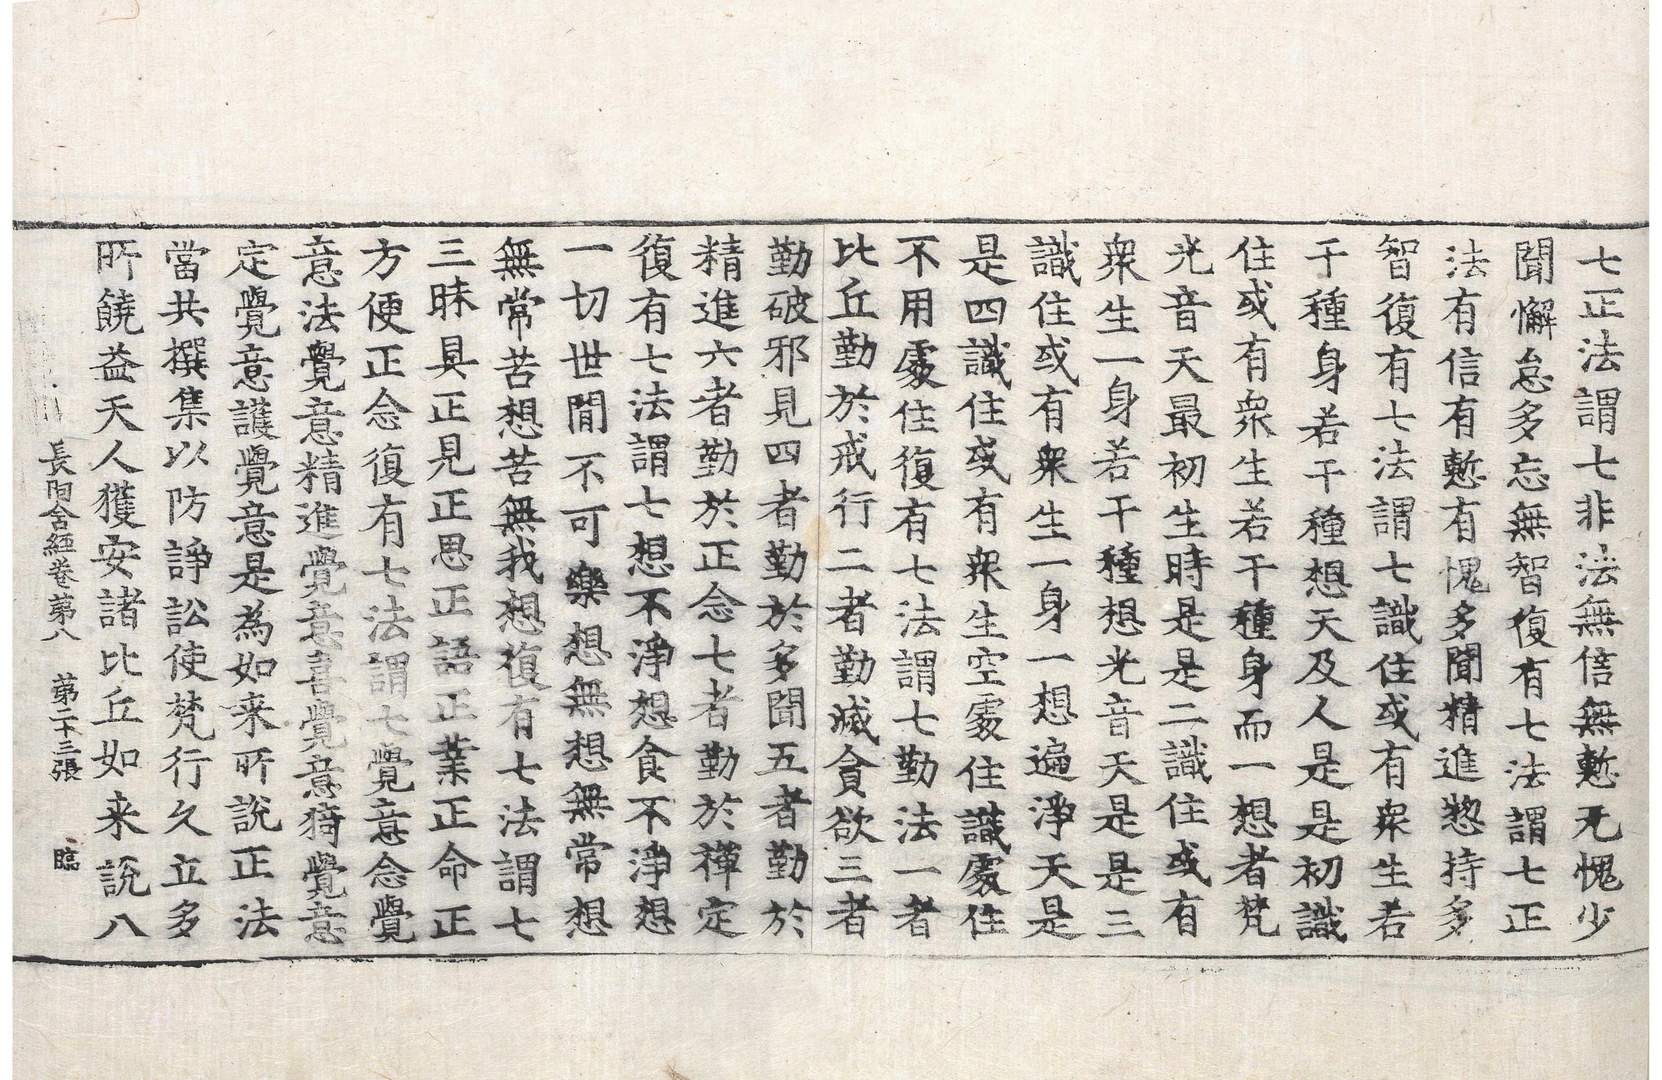 七正法謂七非法無信無慙无愧少
聞懈怠多忘無智復有七法謂七正
法有信有慙有愧多聞精進惣持多
智復有七法謂七識住或有衆生若
干種身若干種想天及人是是初識
住或有衆生若干種身而一想者梵
光音天最初生時是是二識住或有
衆生一身若干種想光音天是是三
識住或有衆生一身一想遍淨天是
是四識住或有衆生空處住識處住
不用處住復有七法謂七勤法一者
比丘勤於戒行二者勤滅貪欲三者
勤破邪見四者勤於多聞五者勤於
精進六者勤於正念七者勤於禪定
復有七法謂七想不淨想食不淨想
一切世間不可樂想無想無常想
無常苦想苦無我想復有七法謂七
三昧具正見正思正語正業正命正
方便正念復有七法謂七覺意念覺
意法覺意精進覺意喜覺意猗覺意
定覺意護覺意是為如来所說正法
當共撰集以防諍訟使梵行久立多
所饒益天人獲安諸比丘如来說八
長阿含經卷第八 第二十三張 臨